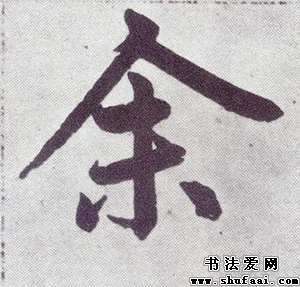 余
书法爱网
www.shufaai.com